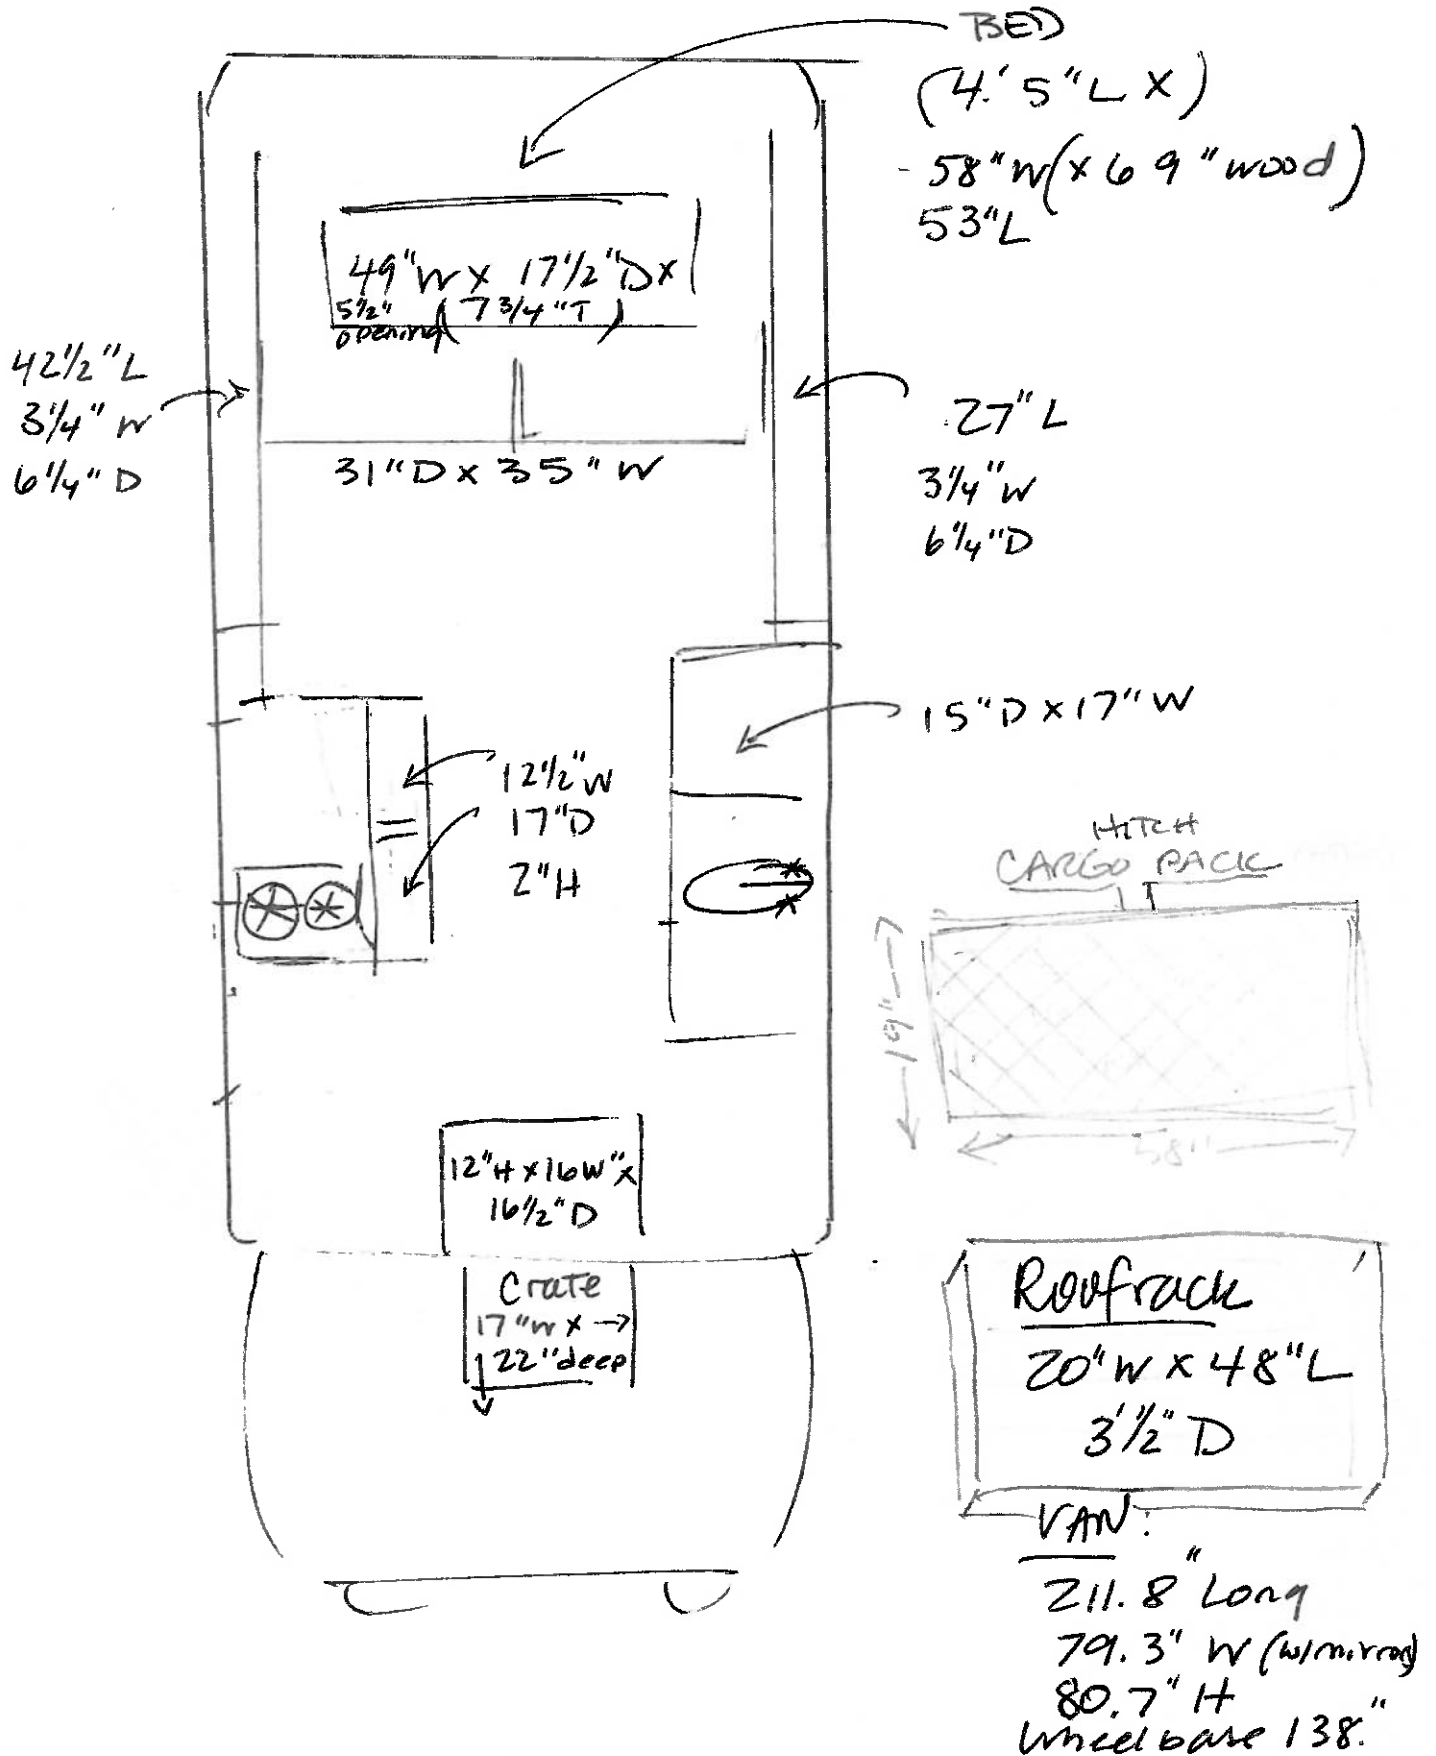 BED
(4.' 5"L X)
- 58"W(x 69"wood)
53"L
49"W x 17 1/2"D x
5 1/2" opening (7 3/4"T)
42 1/2"L
3 1/4"W
6 1/4"D
27"L
3 1/4"W
6 1/4"D
31"D x 35"W
15"D x 17"W
12 1/2"W
17"D
2"H
HITCH
CARGO PACK
19"
58"
12"H x 16W"x
16 1/2"D
Crate
17"W x
22"deep
Roofrack
20"W x 48"L
3' 1/2" D
VAN:
211.8" Long
79.3" W (w/mirror)
80.7" H
wheelbase 138."